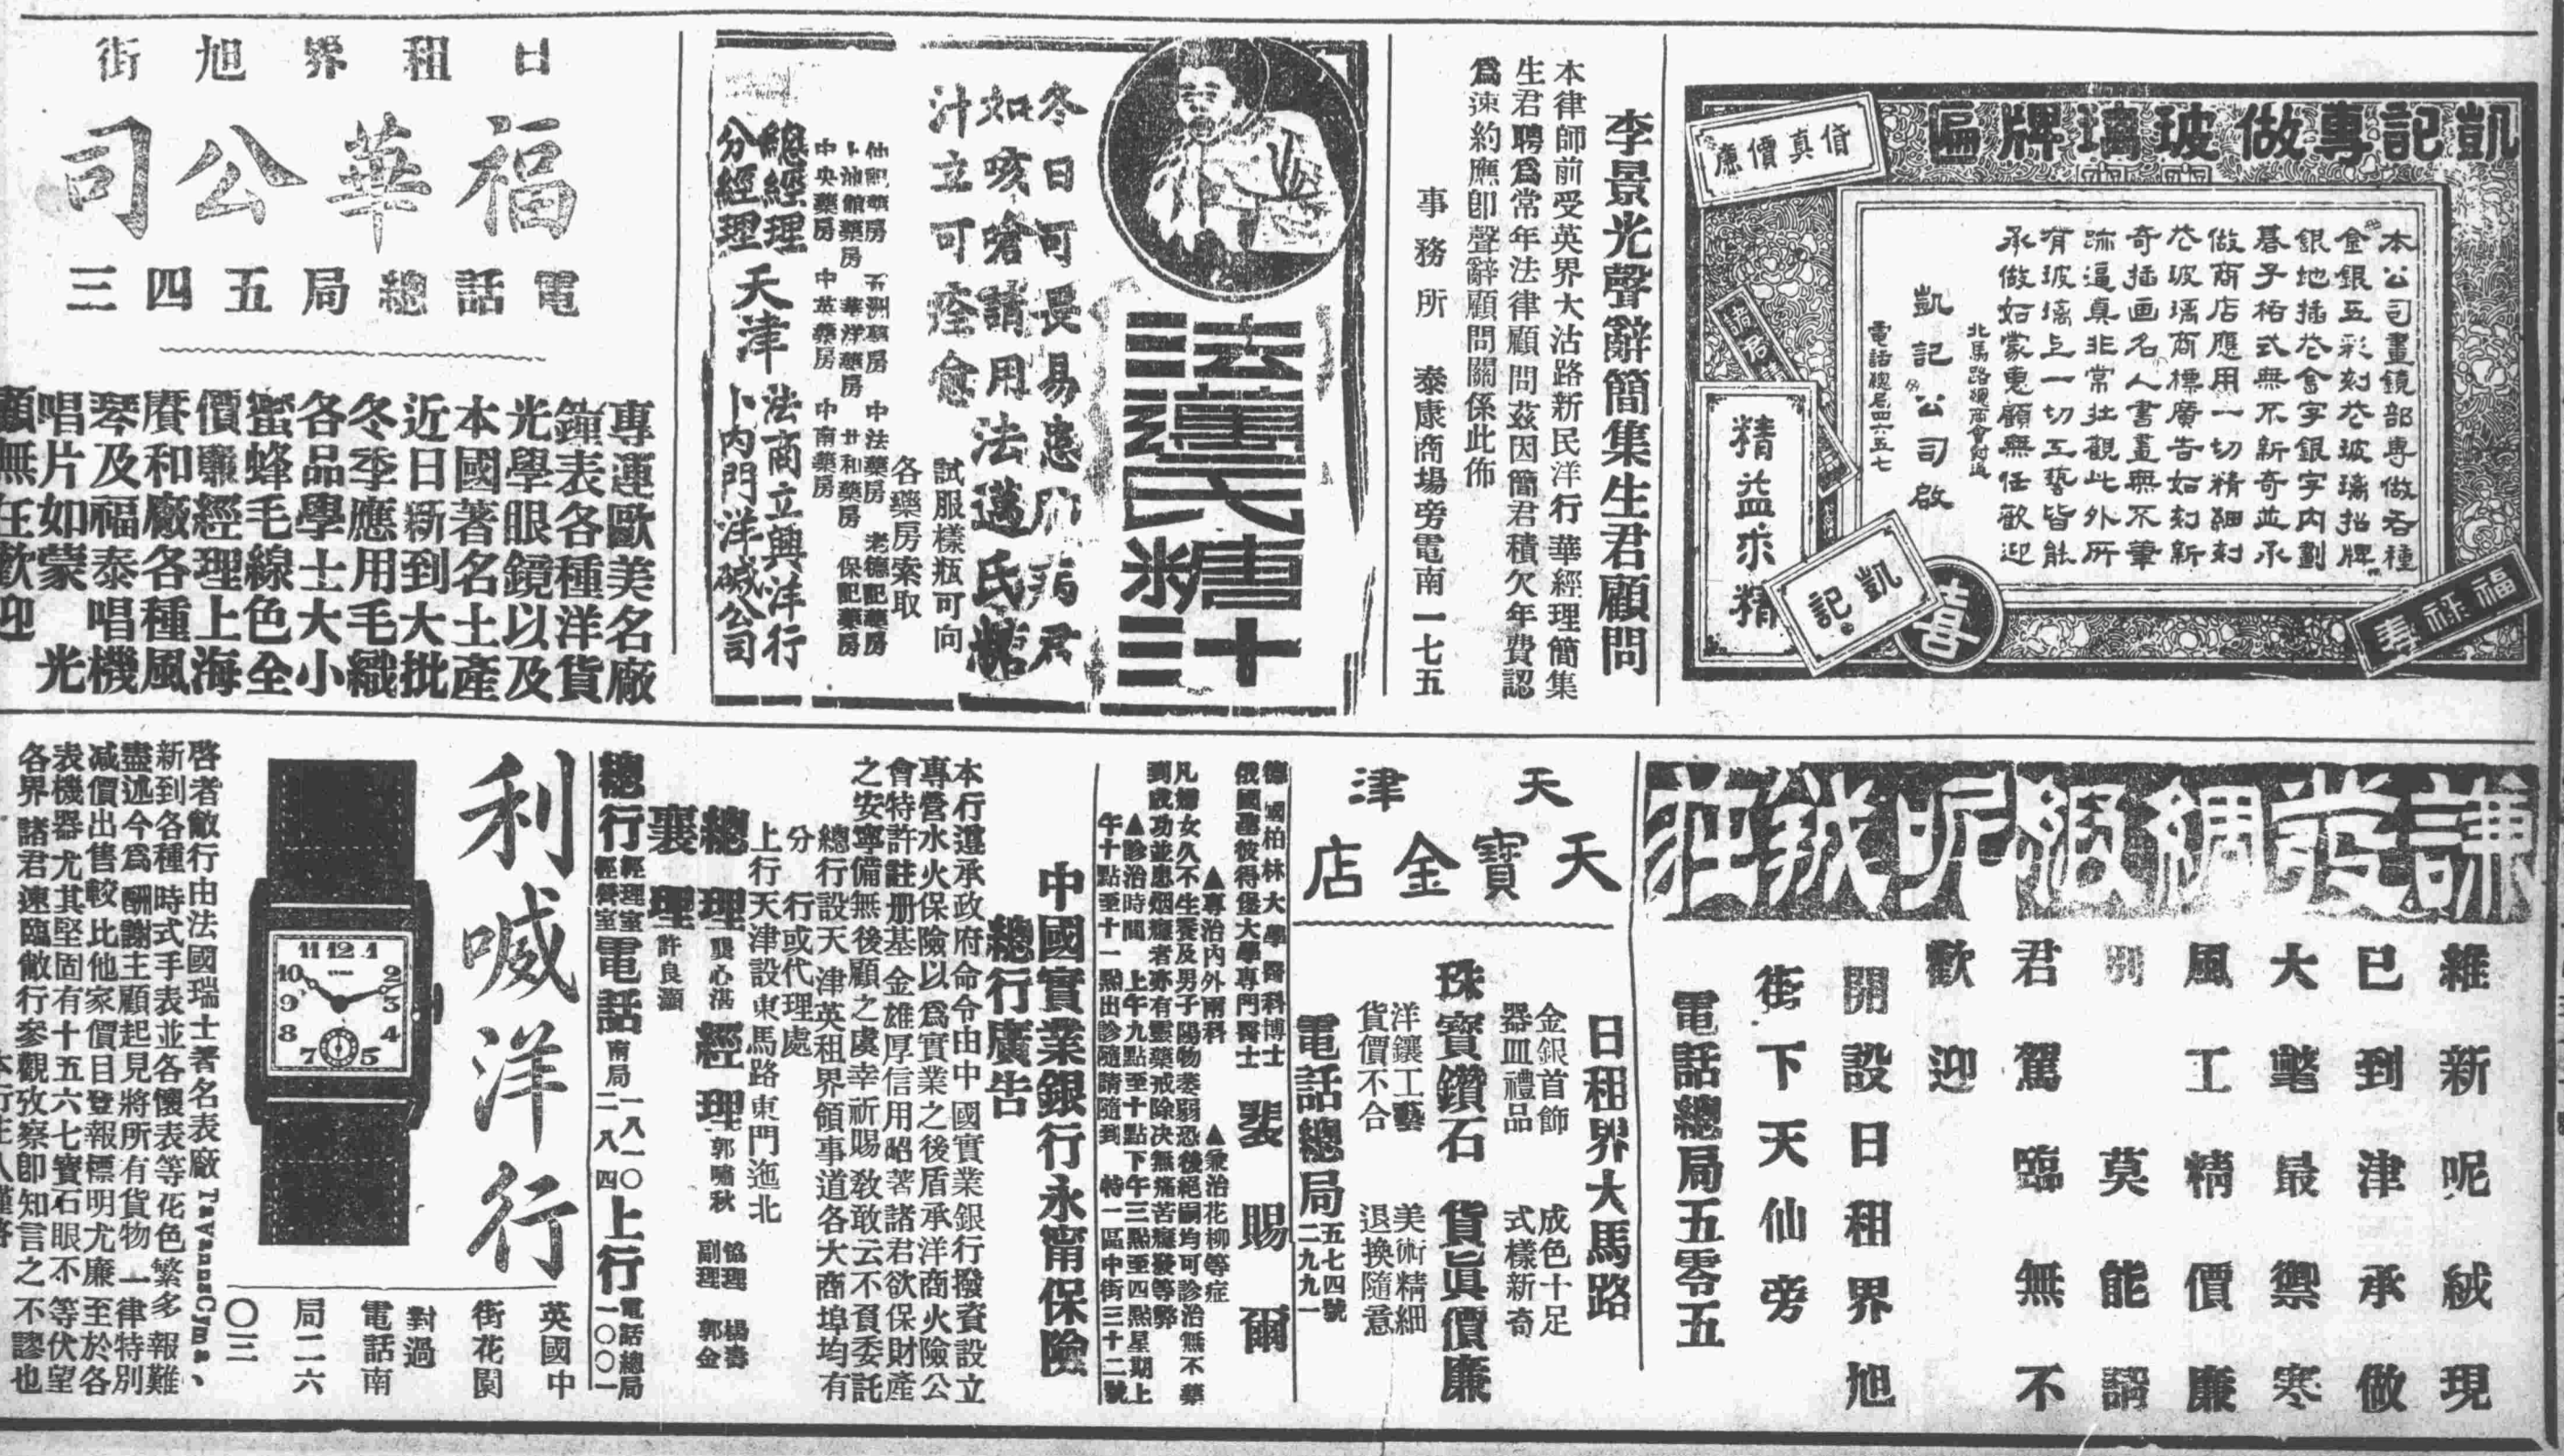 凱記專做玻璃牌匾
貨真價廉
本公司畫鏡部專做各種
金銀五彩刻花玻璃招牌
銀地插花金字銀字內劃
碁子格式無不新奇並承
做商店應用一切精細刻
花玻璃商標廣告如刻新
奇插画名人書畫無不筆
跡逼真非常壯觀此外所
有玻璃上一切工藝皆能
承做如蒙惠顧無任歡迎
北馬路總商會對過
凱記公司啟
電話總局四六五七
諸君
精益求精
凱記
喜
福祿壽
李景光聲辭簡集生君顧問
本律師前受英界大沽路新民洋行華經理簡集
生君聘爲常年法律顧問茲因簡君積欠年費認
爲速約應卽聲辭顧問關係此佈
事務所 泰康商場旁電南一七五
法邁氏唐
冬日可畏易患肺病君
如咳嗆請用法邁氏糖
汁立可痊愈
試服樣瓶可向
各藥房索取
五洲藥房 中法藥房 老德記藥房
華洋藥房 廿和藥房 保記藥房
中央藥房 中英藥房 中南藥房
總經理 天津 法商立興洋行
分經理 卜內門洋碱公司
日租界旭街
福華公司
電話總局五四三
專運歐美名廠
鐘表各種洋貨
光學眼鏡以及
本國著名土產
近日新到大批
冬季應用毛織
各品學士大小
蜜蜂毛線色全
價廉經理上海
賡和廠各種風
琴及福泰唱機
唱片如蒙 光
顧無任歡迎
謙裝綢緞呢絨莊
維新呢絨現
已到津承做
大氅最禦寒
風工精價廉
別莫能謂
君駕臨無不
歡迎
開設日租界旭
街下天仙旁
電話總局五零五
天津
天寶金店
日租界大馬路
金銀首飾 成色十足
器皿禮品 式樣新奇
珠寶鑽石 貨眞價廉
洋鑲工藝 美術精細
貨價不合 退換隨意
電話總局五七四號
二九九一
德國柏林大學醫科博士
俄國聖彼得堡大學專門醫士 裴賜爾
▲專治內外兩科 ▲兼治花柳等症
凡婦女久不生養及男子陽物萎弱恐後絕嗣均可診治無不藥
到成功並患烟癮者亦有靈藥戒除决無痛苦癮發等弊
▲診治時間 上午九點至十點下午三點至四點星期上
午十點至十一點出診隨請隨到 特一區中街三十二號
中國實業銀行永甯保險
總行廣告
本行遵承政府命令由中國實業銀行撥資設立
專營水火保險以爲實業之後盾承洋商火險公
會特許註册基金雄厚信用昭著諸君欲保財產
之安寧備無後顧之虞幸祈賜敎敢云不負委託
總行設天津英租界領事道各大商埠均有
分行或代理處
上行天津設東馬路東門迤北
總理 龔心湛 經理 郭嘯秋 協理 楊壽
襄理 許良灝 副理 郭金
總行 經理室 經營室 電話 南局 一八一〇 二八四 上行 電話總局 一〇〇一
利喊洋行
11 12 1
10 2
9 3
8 4
7 5
英國中
街花園
對過
電話南
局二六
〇三
啓者敝行由法國瑞士著名表廠TavannsCyma、
新到各種時式手表並各懷表等花色繁多報難
盡述今爲酬謝主顧起見將所有貨物一律特別
減價出售較比他家價目登報標明尤廉至於各
表機器尤其堅固有十五六七寶石眼不等伏望
各界諸君速臨敝行參觀攷察卽知言之不謬也